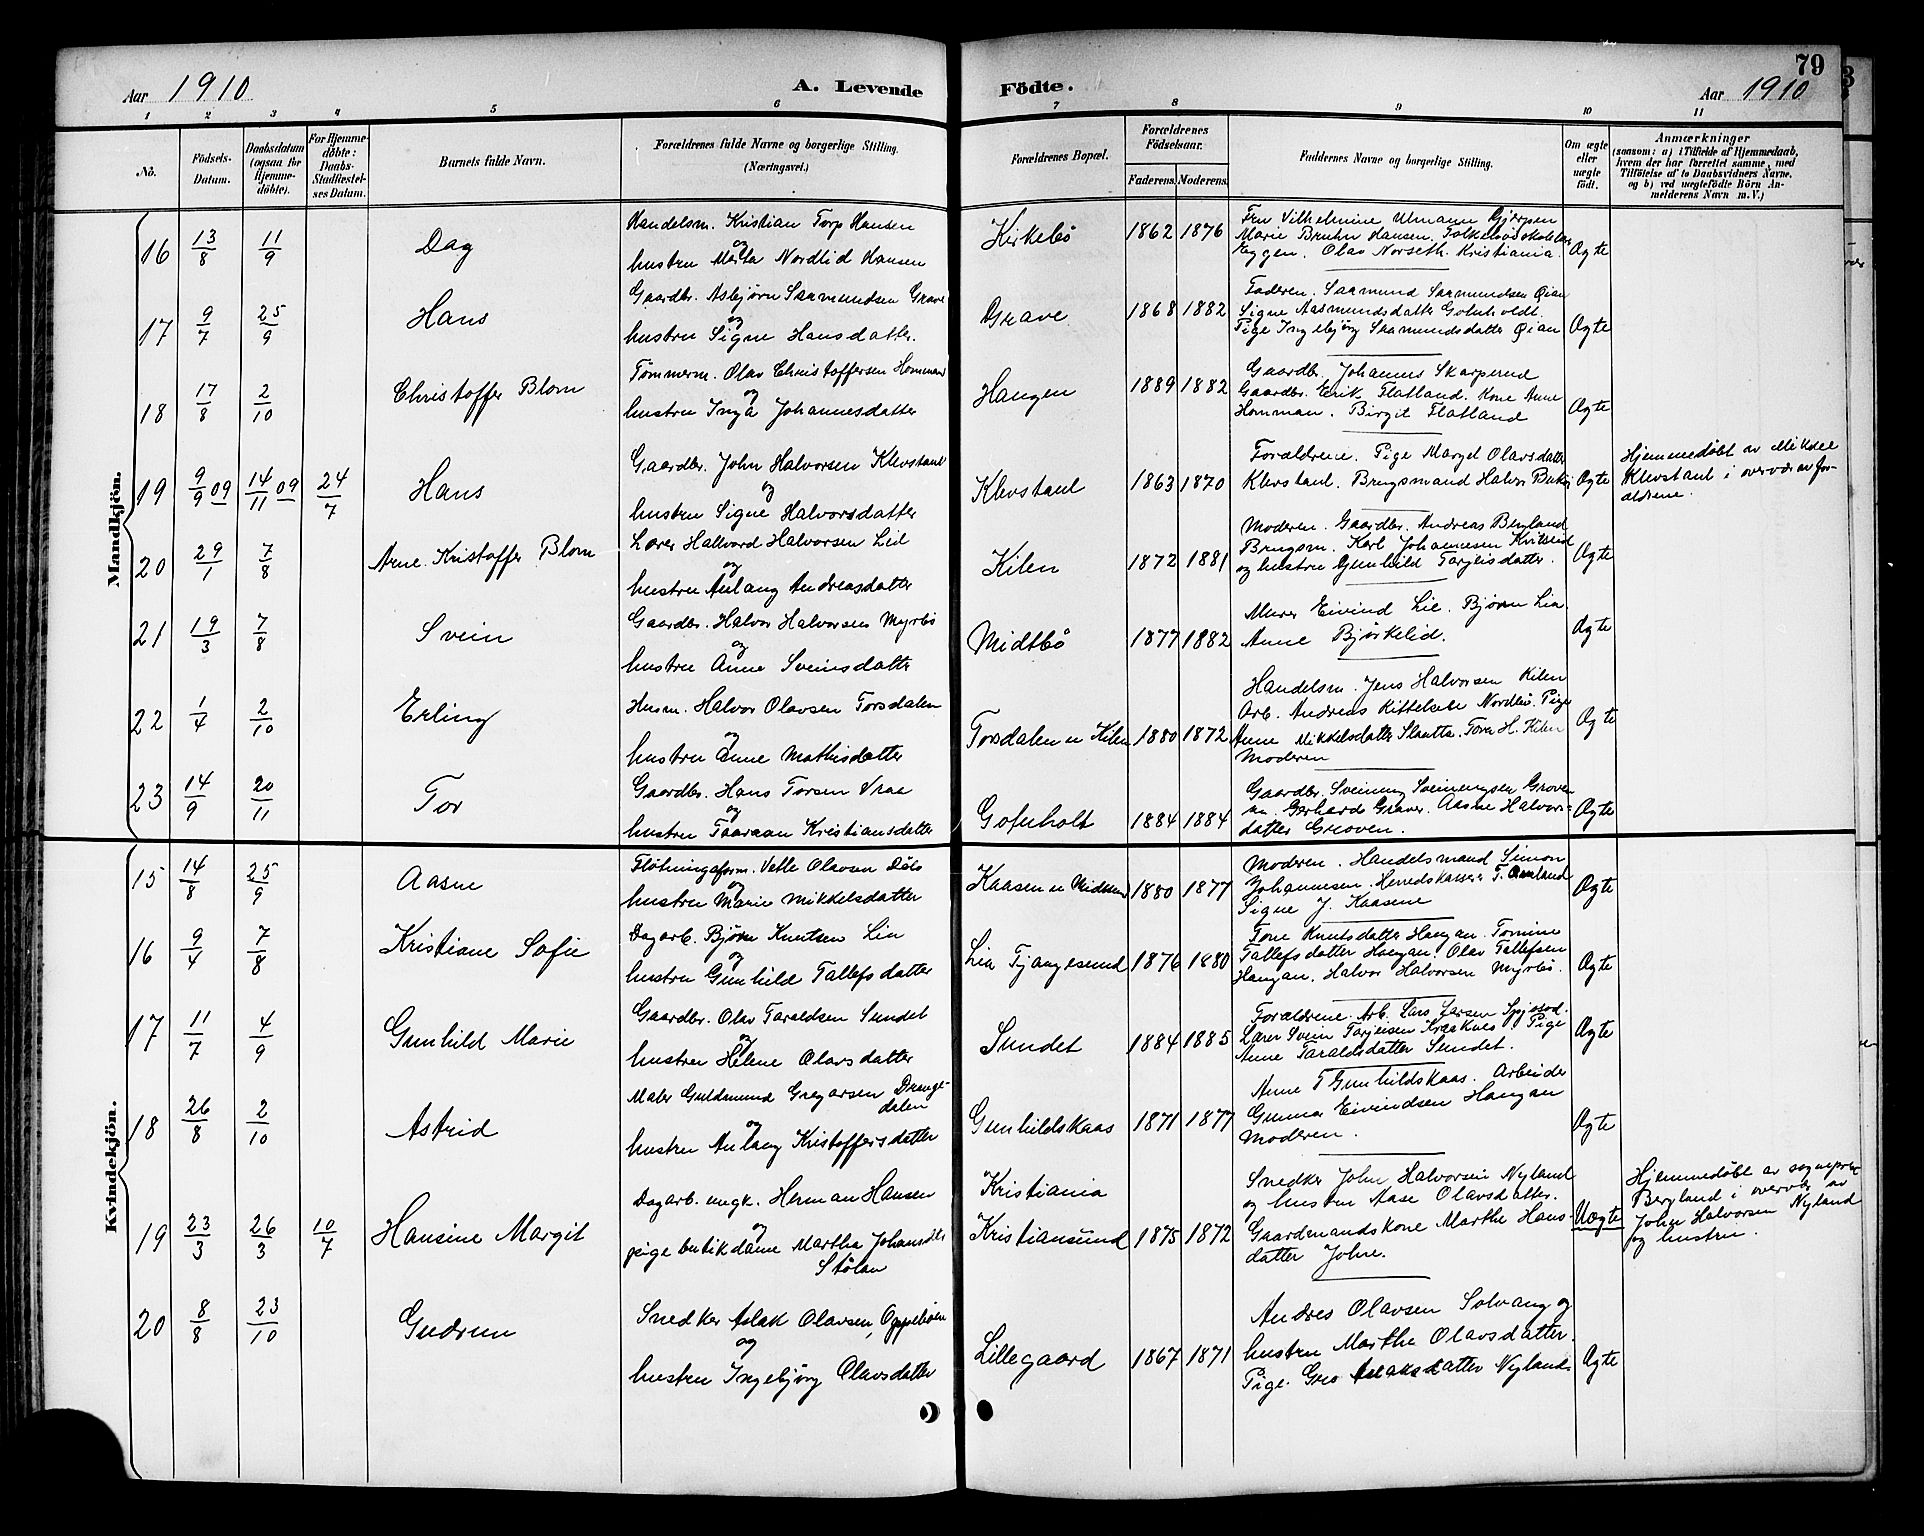 79
Aar 1910
A. Levende Födte.
Aar 1910
1 2 3 4 5 6 7 8 9 10 11
No.
Födsels-Datum.
Daabsdatum (ogsaa for Hjemme-döbte).
For Hjemme-döbte: Daabs-Stadfæstel-ses Datum.
Barnets fulde Navn.
Forældrenes fulde Navne og borgerlige Stilling.
(Næringsvei.)
Forældrenes Bopæl.
Forældrenes Födselsaar.
Faderens. Moderens.
Faddernes Navne og borgerlige Stilling.
Om ægte eller uægte födt.
Anmærkninger
(saasom: a) i Tilfælde af Hjemmedaab,
hvem der har forrettet samme, med
Tilföielse af to Daabsvidners Navne.
og b) ved uægtefödte Börn An-
melderens Navn m. V.)
Mandkjön.
16 13/8 11/9 Dag
Handelsm. Kristian Torp Hansen
og
hustru Marta Nordlid Hansen
Kirkebö 1862 1876
Fru Vilhelmine Ulmann Gjerpen
Marie Bruhn Hansen.
Eggen. Olav Norseth. Kristiania.
Ægte
17 9/7 25/9 Hans
Gaardbr. Asbjørn Saamundsen Grave
og
hustru Signe Hansdatter.
Grave 1868 1882
Faderen. Saamund Saamundsen Øian
Signe Aasmundsdatter Gofnholdt.
Pige Ingebjørg Saamundsdatter Øian
Ægte
18 17/8 2/10 Christoffer Blom
Tömmerm. Olav Christoffersen Homman
og
hustru Inga Johannesdatter
Haugen 1889 1882
Gaardbr. Johannes Skarperud
Gaardbr. Erik Flatland. Kone Anne
Homman. Birgit Flatland
Ægte
19 9/9 09 14/11 09 24/7 Hans
Gaardbr. John Halvorsen Klevstaul
og
hustru Signe Halvorsdatter
Klevstaul 1863 1870
Forældrene. Pige Margit Olavsdatter
Klevstaul. Brugsmand Halvor
Ægte
Hjemmedøbt av Mikkel
Klevstaul i overvær av for-
ældrene.
20 29/1 7/8 Arne Kristoffer Blom
Lærer Hallvard Halvorsen Lid
og
hustru Aslaug Andreasdatter
Kilen 1872 1881
Moderen. Gaardbr. Andreas Bergland
Brugsm. Karl Johannesen
og hustru Gunhild Targjeisdatter.
Ægte
21 19/3 7/8 Svein
Gaardbr. Halvor Halvorsen Myrbö
og
hustru Anne Sveinsdatter
Midtbö 1877 1882
Murer Eivind Lie. Bjørn Lia.
Anne Bjørkelid.
Ægte
22 1/4 2/10 Erling
Husm. Halvor Olavsen Torsdalen
og
hustru Anne Mathisdatter
Torsdalen u Kilen 1880 1872
Handelsm. Jens Halvorsen Kilen
Arb. Andreas Kittelsen Nordbö. Pige
Anne Mikkelsdatter Slaatta. Tora H. Kilen
Moderen
Ægte
23 14/9 20/11 Tor
Gaardbr. Hans Torsen Vraa
og
hustru Taaraan Kristiansdatter
Gofnholt 1884 1884
Gaardbr. Sveinung Sveinungsen Groven
Gerhard Graver. Aasne Halvors-
datter Groven.
Ægte
Kvindekjön.
15 14/8 25/9 Aasne
Fløtningsform. Vetle Olavsen Dals
og
hustru Marie Mikkelsdatter
Kaasen u Midtbö 1880 1877
Moderen. Handelsmand Simon
Johannesen. Herredskasser T. Omland
Signe J. Kaasene
Ægte
16 9/4 7/8 Kristiane Sofie
Dagarb. Bjørn Knutsen Lia
og
hustru Gunhild Tallefsdatter
Lia Tjangesund 1876 1880
Tone Knutsdatter Haugan. Tomine
Tallefsdatter Haugan. Olav Tallefsen
Haugan. Halvor Halvorsen Myrbö.
Ægte
17 11/7 4/9 Gunhild Marie
Gaardbr. Olav Taraldsen Sundet
og
hustru Helene Olavsdatter
Sundet 1884 1885
Forældrene. Arb. Lars Larsen
Lærer Svein Tarjeisen Kraaknes Pige
Anne Taraldsdatter Sundet.
Ægte
18 26/8 2/10 Astrid
Maler Guldmund Gregarsen Drange-
dalen
og
hustru Aslaug Kristoffersdatter
Gunhildskaas 1871 1877
Anne T Gunhildskaas. Arbeider
Gunnar Eivindsen Haugan
Moderen.
Ægte
19 23/3 26/3 10/7 Hansine Margit
Dagarb. ungk. Herman Hansen
og
pige butikdame Martha Johansdtr
Stölan
Kristiania
Kristiansund 1875 1872
Snedker John Halvorsen Nyland
og hustru Aase Olavsdatter.
Gaardmandskone Marthe Hans-
datter Johre.
Uægte
Hjemmedøbt av sognepr.
Bergland i overvær av
John Halvorsen Nyland
og hustru.
20 8/8 23/10 Gudrun
Snedker Aslak Olavsen, Oppeböen
og
hustru Ingebjørg Olavsdatter
Lillegaard 1867 1871
Andres Olavsen Solvang og
hustru Marthe Olavsdatter.
Pige Gro Aslaksdatter Nyland.
Ægte